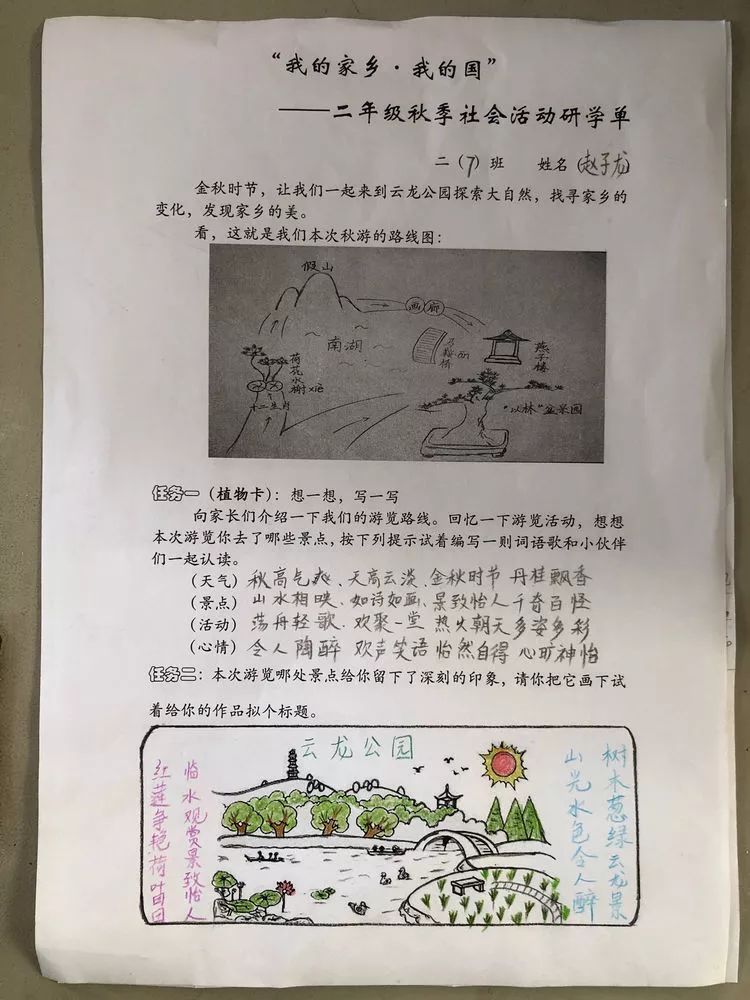 “我的家乡·我的国”
——二年级秋季社会活动研学单
二（7）班 姓名（赵子龙）
金秋时节，让我们一起来到云龙公园探索大自然，找寻家乡的
变化，发现家乡的美。
看，这就是我们本次秋游的路线图：
假山
画廊
南湖
燕子楼
荷花水榭
十二生肖
“以林”盆景园
任务一（植物卡）：想一想，写一写
向家长们介绍一下我们的游览路线。回忆一下游览活动，想想
本次游览你去了哪些景点，按下列提示试着编写一则词语歌和小伙伴
们一起认读。
（天气）秋高气爽、天高云淡、金秋时节 丹桂飘香
（景点）山水相映、如诗如画、景致怡人 千奇百怪
（活动）荡舟轻歌、欢聚一堂 热火朝天 多姿多彩
（心情）令人陶醉 欢声笑语 怡然自得 心旷神怡
任务二：本次游览哪处景点给你留下了深刻的印象，请你把它画下试
着给你的作品拟个标题。
云龙公园
树木葱绿云龙景
山光水色令人醉
临水观赏景致怡人
红莲争艳荷叶田田